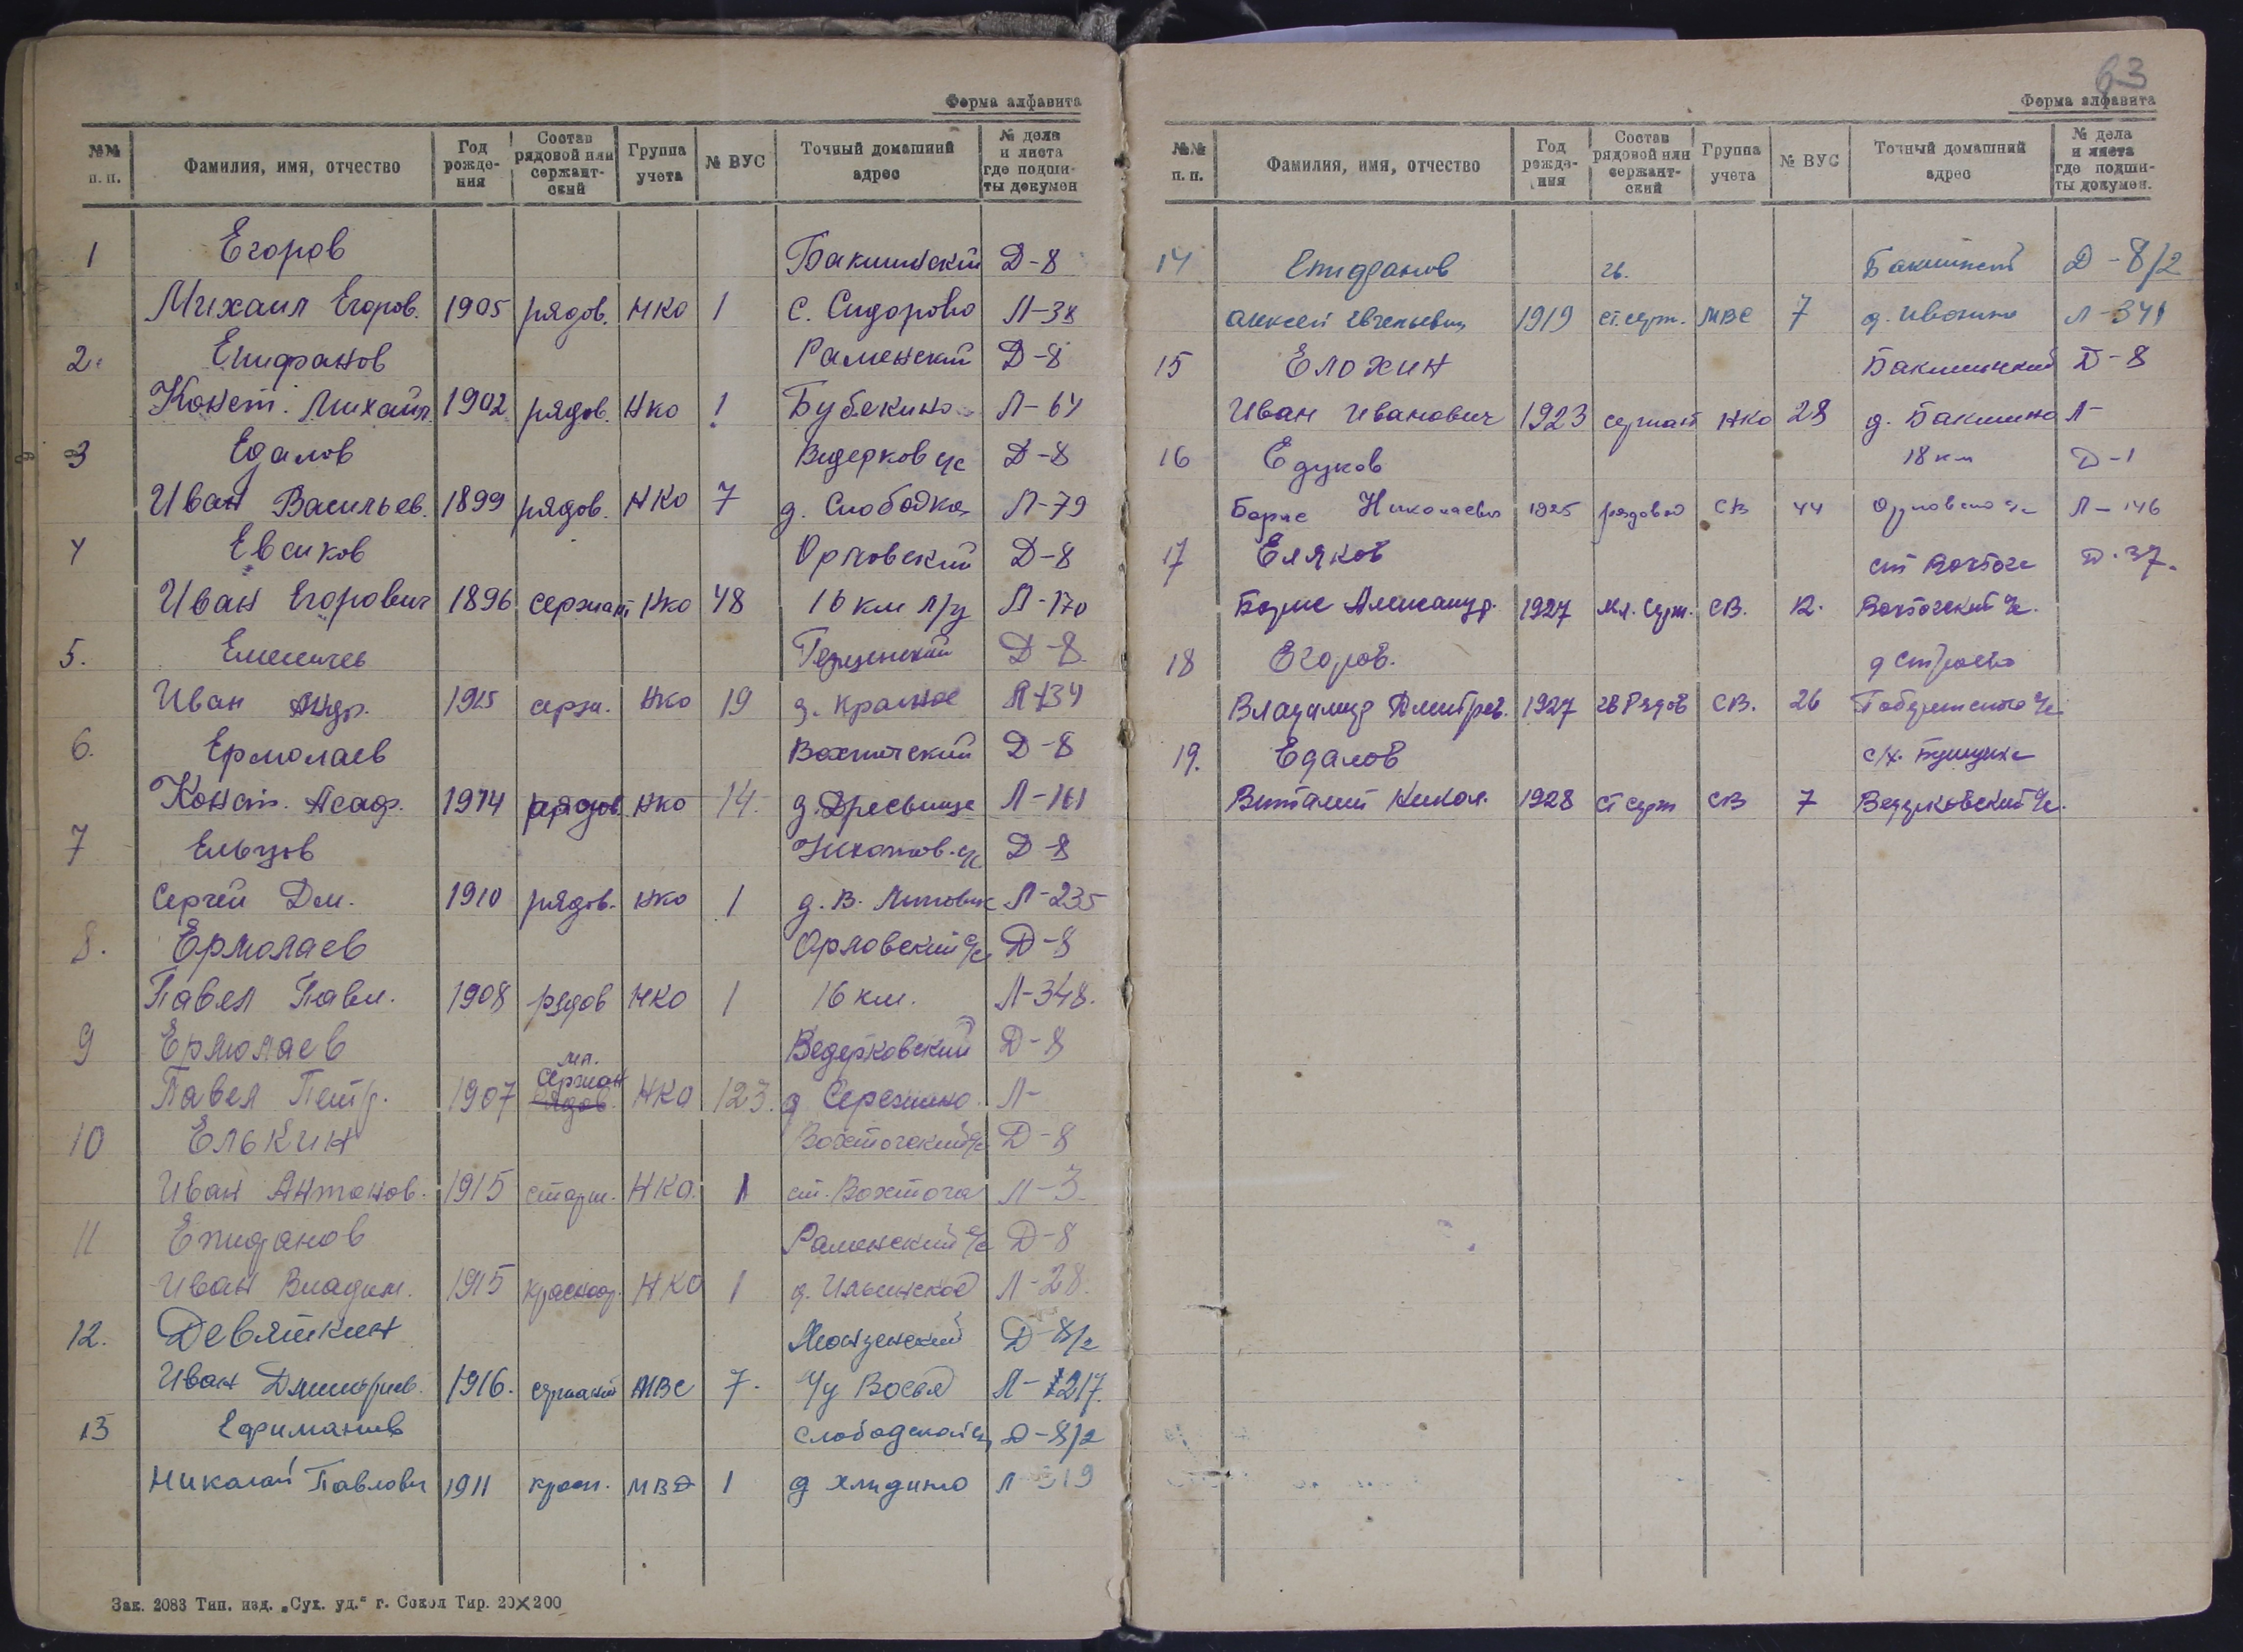 Форма алфавита
№№ п. п. Фамилия, имя, отчество Год рожде- ния Состав рядовой или сержант- ский Группа учета № ВУС Точный домашний адрес № дела и листа где подши- ты докумен
1 Егоров Бакшинский Д-8
Михаил Егоров. 1905 рядов. НКО 1 с. Сидорово Л-38
2. Епифанов Раменский Д-8
Конст. Михайл. 1902 рядов. НКО 1 Бубякино Л-64
3 Едалов Ведерков с/с Д-8
Иван Васильев. 1899 рядов. НКО 7 д. Слободка Л-79
4 Евсиков Орловский Д-8
Иван Егорович 1896 сержант НКО 48 16 км л/у Л-170
5. Д-8.
Иван Андр. 1915 серж. НКО 19 д. Красное Л-134
6. Ермолаев Вохтогский Д-8
Конст. Асаф. 1914 рядов. НКО 14. д. Дресвище Л-161
7 Ельцов Д-8
Сергей Дм. 1910 рядов. НКО 1 д. В. Л-235
8. Ермолаев Орловский с/с Д-8
Павел Павл. 1908 рядов НКО 1 16 км. Л-348.
9 Ермолаев Ведерковский Д-8
Павел Петр. 1907 мл. сержан рядов. НКО 123. д Сережино Л-
10 Елькин Вохтогский с/с Д-8
Иван Антонов. 1915 старш. НКО. 1 ст. Вохтога Л-3
11 Епифанов Раменский с/с Д-8
Иван Владим. 1915 красноар. НКО 1 д. Ильинское Л-28.
12. Девяткин Монзенский Д-8/2
Иван Дмитриев. 1916. сержант МВС 7. Л-217.
13 Слободской с/с Д-8/2
Николай Павлович 1911 красн. МВД 1 д Л-319
Зак. 2083 Тип. изд. „Сух. уд." г. Сокол Тир. 20×200
63
Форма алфавита
№№ п. п. Фамилия, имя, отчество Год рожде- ния Состав рядовой или сержант- ский Группа учета № ВУС Точный домашний адрес № дела и листа где подши- ты докумен.
14 Епифанов гв. Бакшинск Д-8/2
Алексей Евгеньевич 1919 ст. серж. МВС 7 д. Л-341
15 Елохин Бакшинский Д-8
Иван Иванович 1923 сержант НКО 28 д. Бакшино Л-
16 Едуков 18 км Д-1
Борис Николаевич 1925 рядовой СВ 44 Орловско с/с Л-146
17 Еляков ст Вохтога Д-37.
Борис Александр. 1927 мл. серж. СВ. 12. Вохтогский с/с.
18 Егоров.
Владимир Дмитрев. 1927 гв рядов СВ. 26
19. Едалов
Виталий Никол. 1928 ст серж СВ 7 Ведерковский с/с.